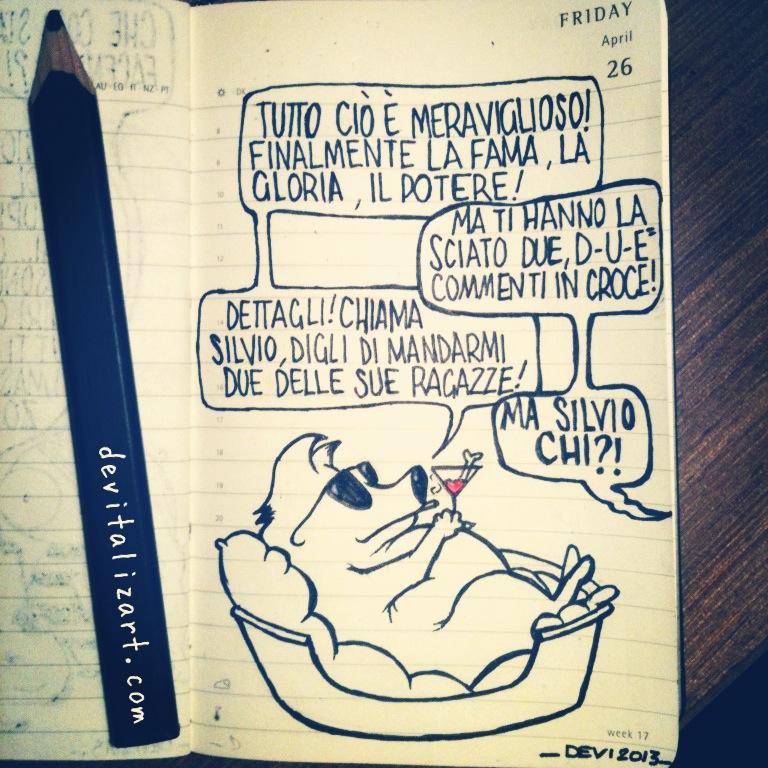 FRIDAY
April
26
TUTTO CIÒ È MERAVIGLIOSO!
FINALMENTE LA FAMA, LA
GLORIA, IL POTERE!
MA TI HANNO LA
SCIATO DUE, D-U-E"
COMMENTI IN CROCE!
DETTAGLI! CHIAMA
SILVIO, DIGLI DI MANDARMI
DUE DELLE SUE RAGAZZE!
MA SILVIO
CHI?!
devitalizart.com
week 17
DEVI 2013